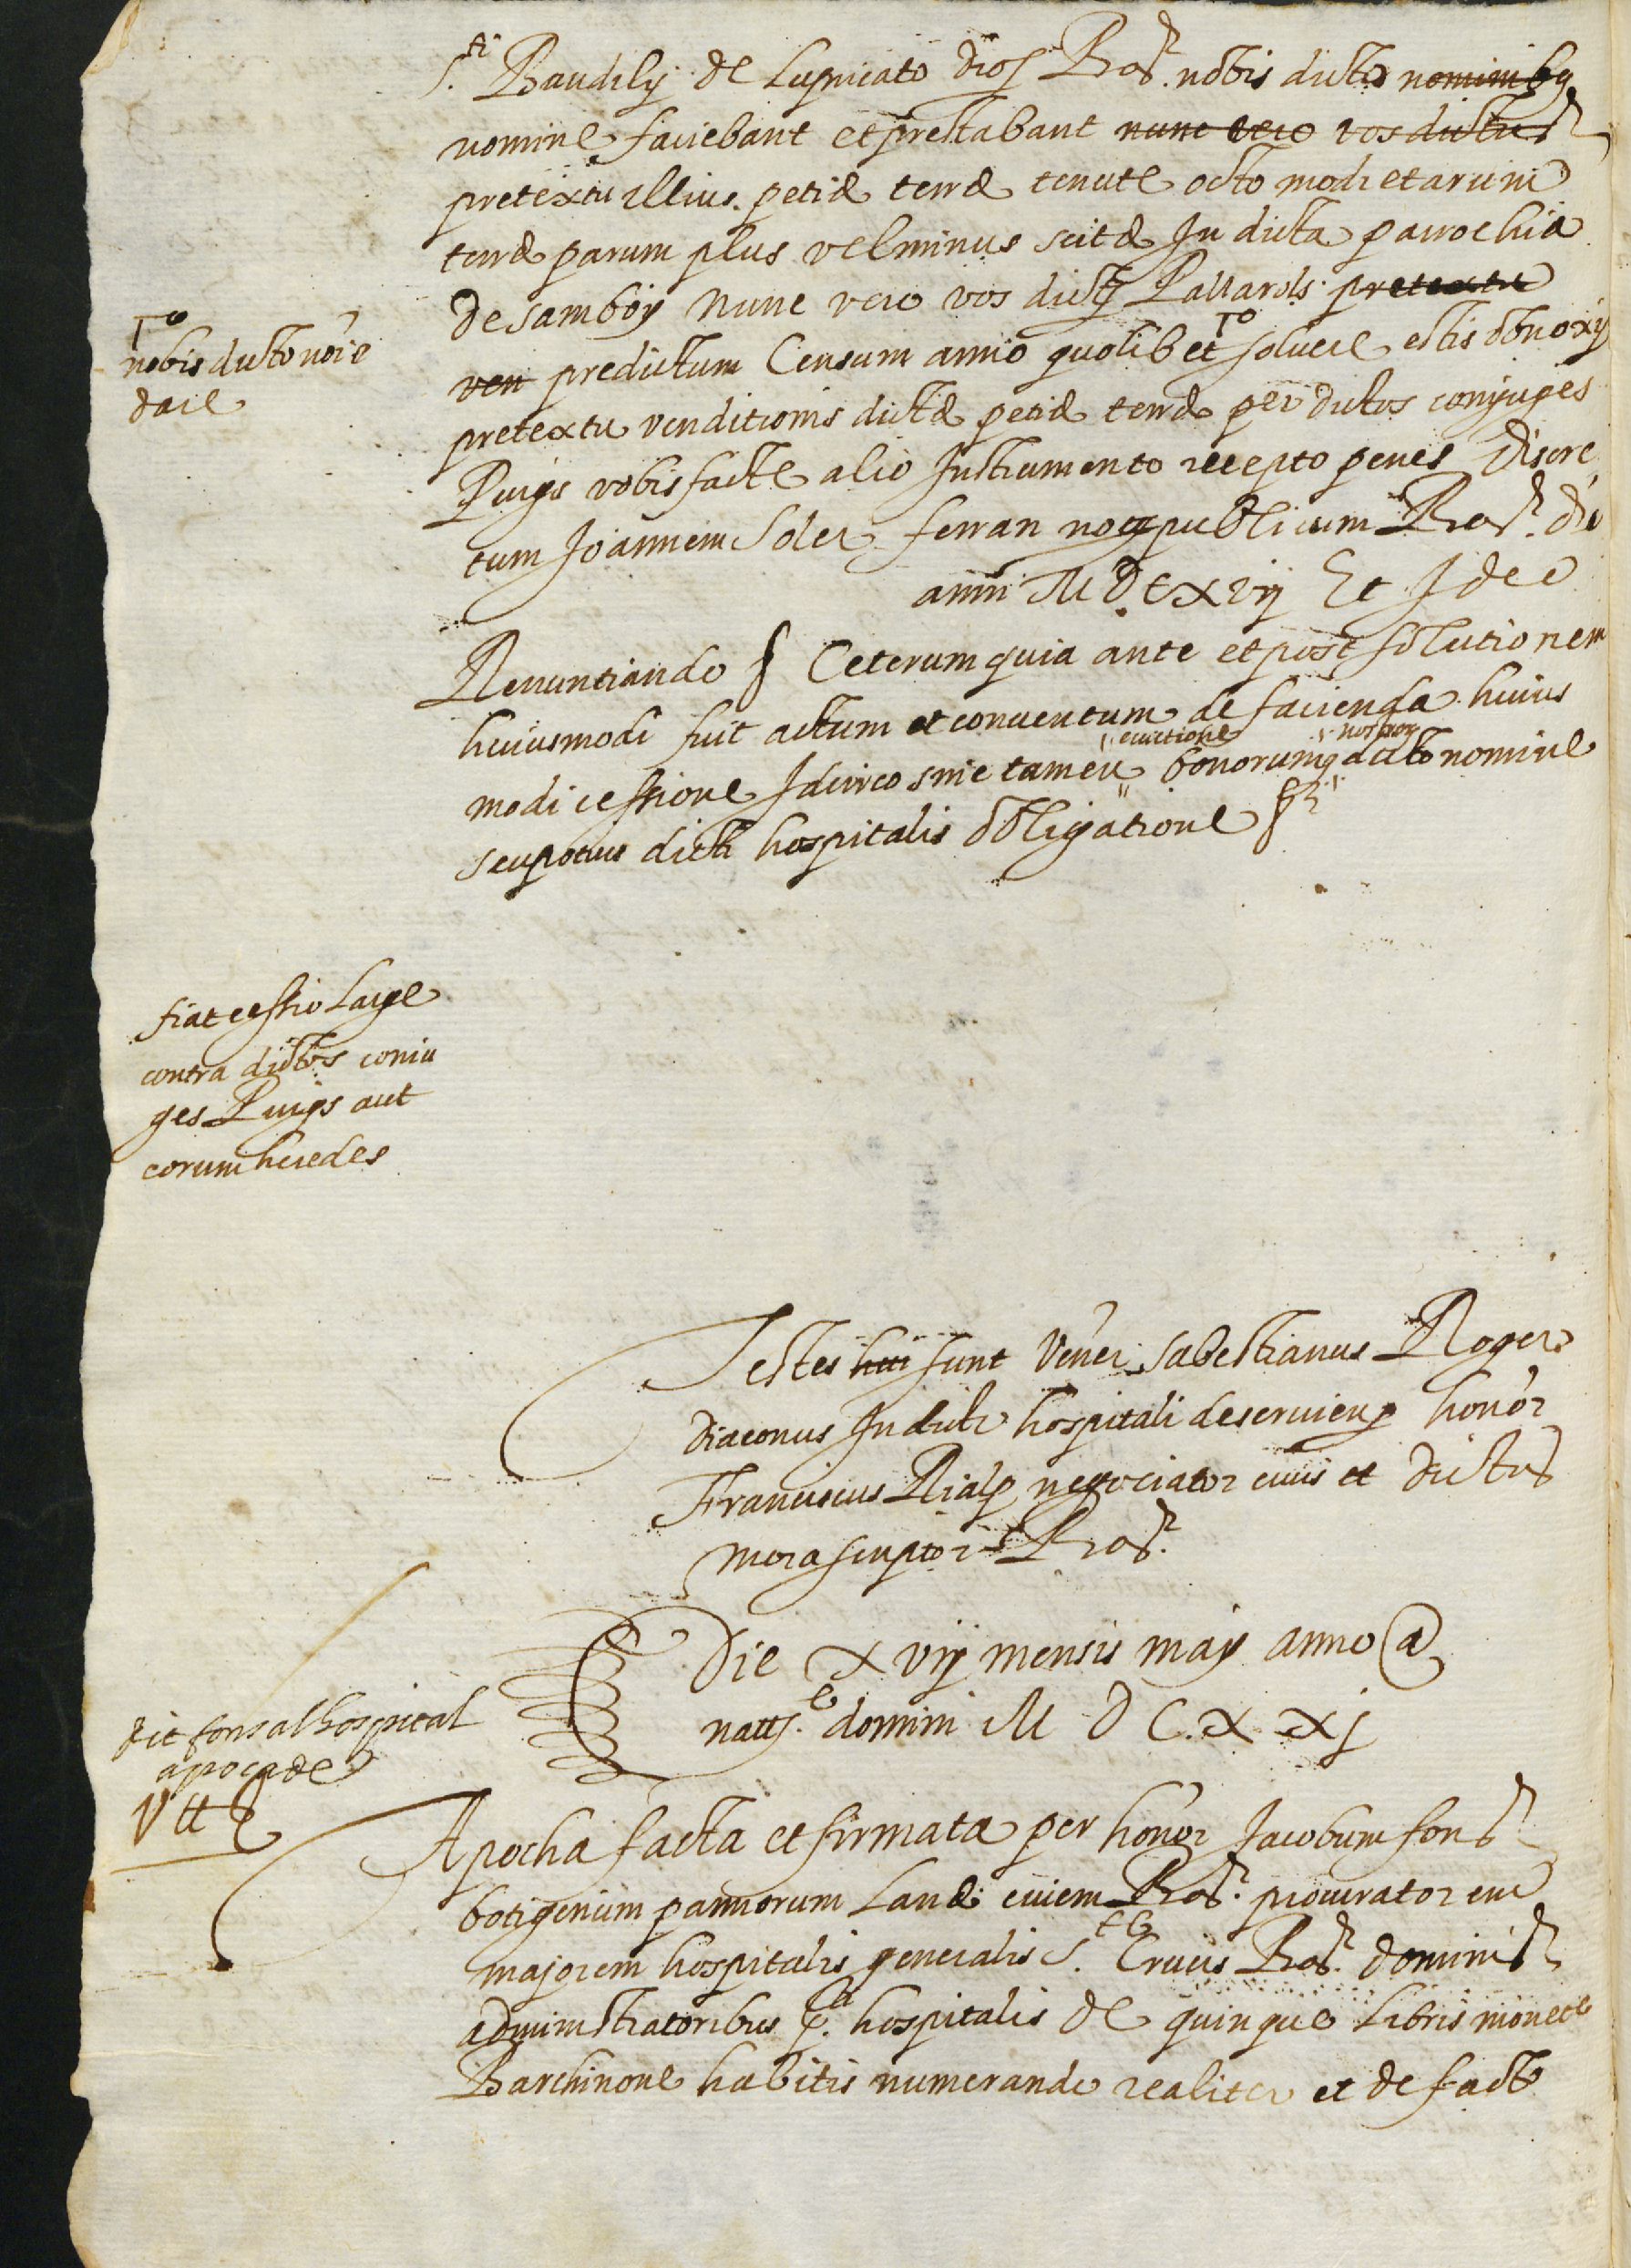 S.ti Baudilij de Lupricato dios Bar. nobis dicto nominibus
nomine faciebant et prestabant nunc vero vos dictus
pretextu illius petie terre tenute octo modietarum
terre parum plus vel minus scite In dicta parrochia
de samboy Nunc vero vos dictus Pallarols pretextu
ven predictum Censum anno quolibet solvere estis obnoxij
nobis dicto noīe
dare
pretextu venditionis dicte petie terre per dictos conjuges
Puigs vobis facte alio Instrumento recepto penes Discre
tum Joannem Soler ferran not. publicum Bar. die
anni M DC XVij Et Ideo
Renuntiando § Ceterum quia ante et post solutionem
huiusmodi fuit actum et conventum de facienda huius
modi cessione Idcirco sine tamen evictione bonorumq nostrorum dicto nomine
seu potius dicti hospitalis obligatione §
fiat cessio Large
contra dictos coniu
ges Puigs aut
eorum heredes
Testes hui sunt Vener. Sabestianus Roger
diaconus In dicto hospitali deserviens honor
Franciscus Rialp negociator civis et dictus
mora scriptor Bar.
Die XVij mensis maij anno @
natt. domini M D C. X Xj
dit fons al hospital
apoca de
V ll
Apocha facta et firmata per honor Jacobum fons
botigerium pannorum Lane civem Bar. procuratorem
majorem hospitalis generalis S.te Crucis Bar. dominis
administratoribus p.ti hospitalis de quinque Libris monete
Barchinone habitis numerando realiter et de facto